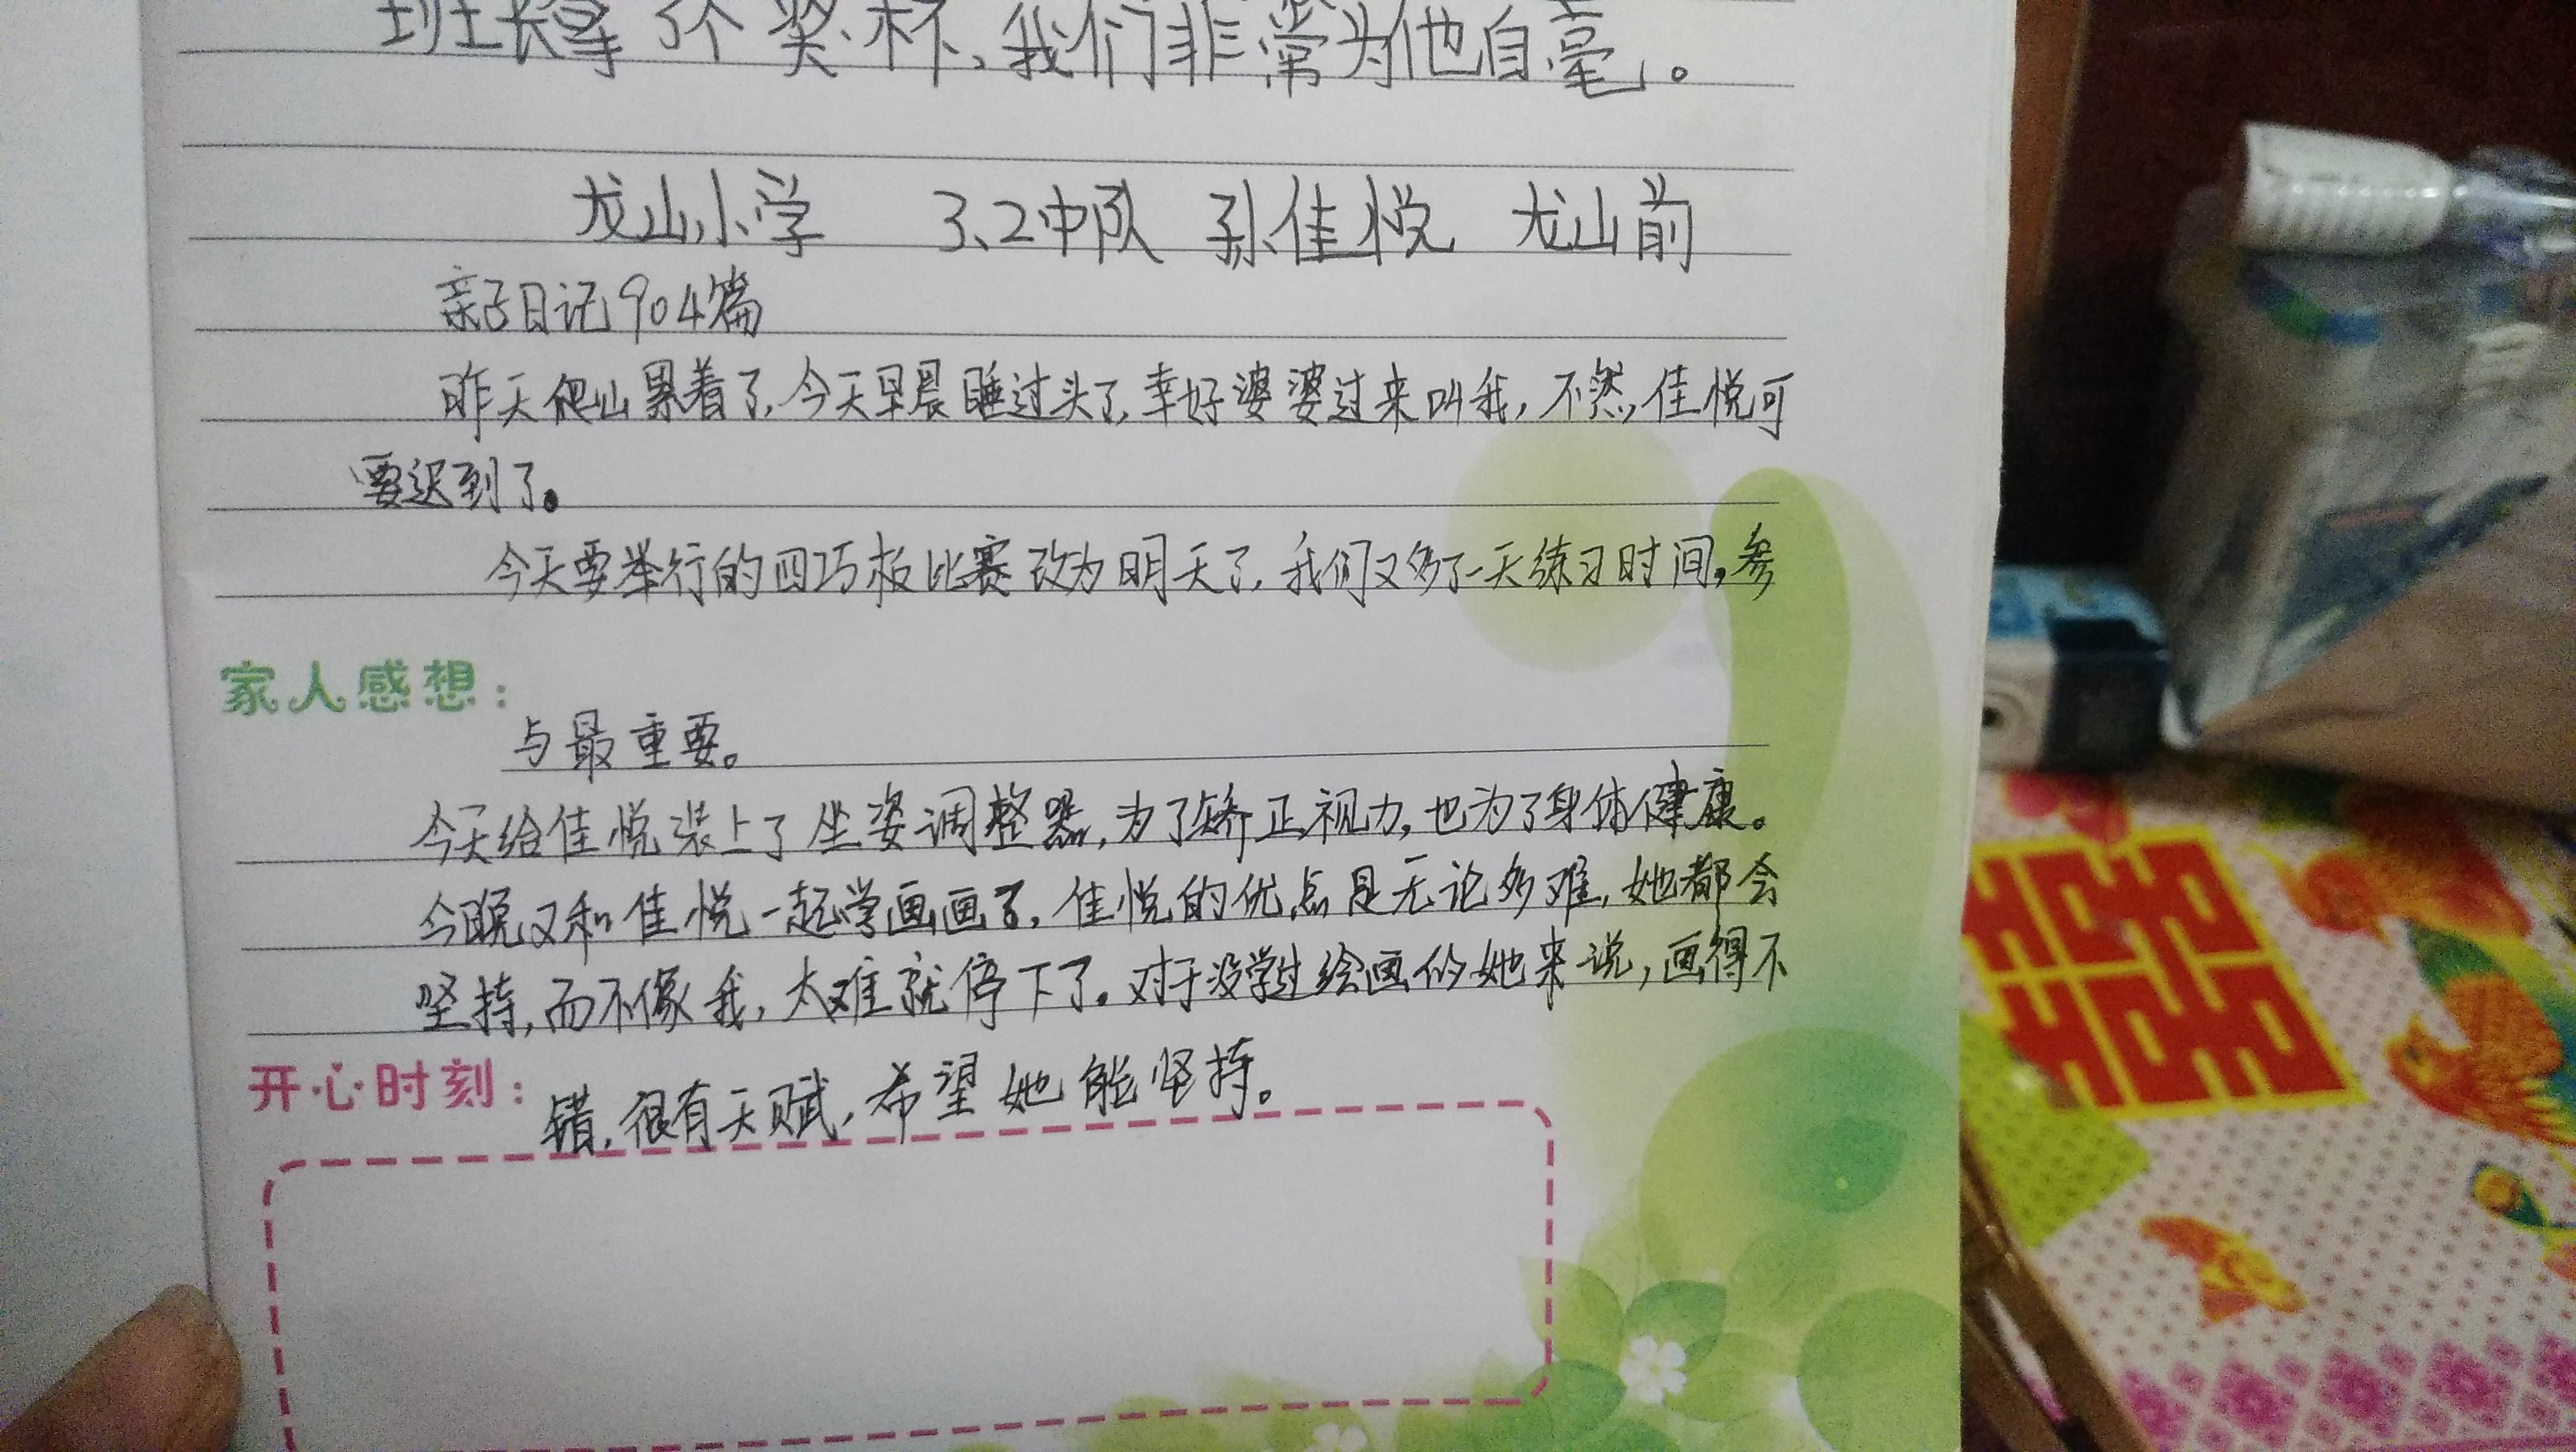 班长拿了个奖杯,我们非常为他自毫。
龙山小学 3、2中队 孙佳悦 龙山前
亲子日记904篇
昨天爬山累着了,今天早晨睡过头了,幸好婆婆过来叫我,不然,佳悦可
要迟到了。
今天要举行的四巧板比赛改为明天了,我们又多了一天练习时间,参
家人感想:
与最重要。
今天给佳悦装上了坐姿调整器,为了矫正视力,也为了身体健康。
今晚又和佳悦一起学画画了,佳悦的优点是无论多难,她都会
坚持,而不像我,太难就停下了。对于没学过绘画的她来说,画得不
开心时刻:
错,很有天赋,希望她能坚持。
囍